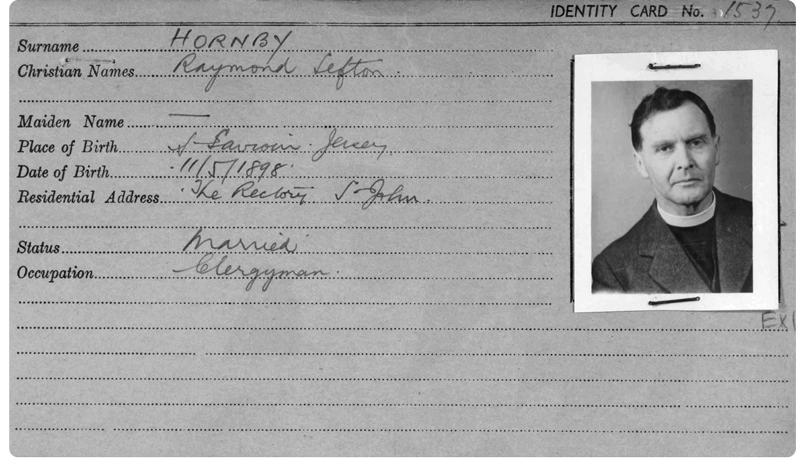 IDENTITY CARD No. 1537
Surname HORNBY
Christian Names Raymond Sefton.
Maiden Name —
Place of Birth St Saviour. Jersey
Date of Birth 11/5/1898.
Residential Address The Rectory St John.
Status Married
Occupation Clergyman.